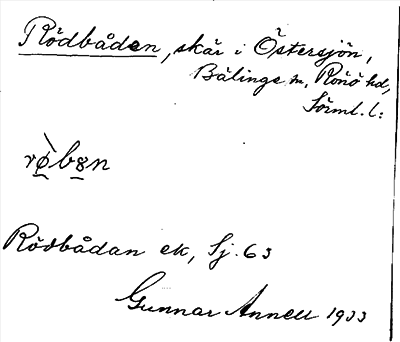 Rödbådan, skär i Östersjön,
Bälinge sn, Rönö hd,
Sörml. l:
Rödbådan ek, Sj. 63
Gunnar Annell 1933